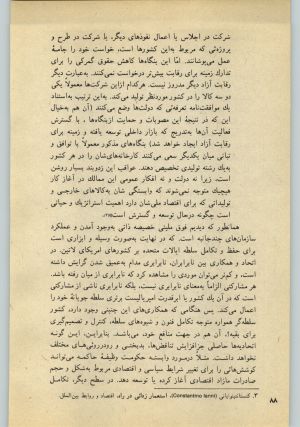 شرکت در اجلاس یا اعمال نفوذهای دیگر، با شرکت در طرح و
پروژه‌ئی که مربوط به‌این کشورها است، خواست خود را جامهٔ
عمل می‌پوشانند. اما این بنگاه‌ها کاهش حقوق گمرکی را برای
تدارک زمینه برای رقابت بیش‌تر درخواست نمی‌کنند. به‌عبارت دیگر
رقابت آزاد دیگر مدروز نیست. هرکدام ازاین شرکت‌ها معمولاً یکی
دو سه کالا را در کشور موردنظر تولید می‌کند. به‌این ترتیب به‌استناد
یک موافقت‌نامه تعرفه‌ئی که دولت‌ها وضع می‌کنند (آن هم به‌خیال
این که در نتیجهٔ این مصوبات و حمایت ازبنگاه‌ها، با گسترش
فعالیت آن‌ها به‌تدریج که بازار داخلی توسعه یافته و زمینه برای
رقابت آزاد ایجاد خواهد شد) بنگاه‌های مذکور معمولاً با توافق و
تبانی میان یکدیگر سعی می‌کنند کارخانه‌های‌شان را در هر کشور
به‌یک رشته تولیدی تخصیص دهند. عواقب این زدوبند بسیار روشن
است، زیرا نه دولت و نه افکار عمومی این ممالک در آغاز کار
هیچیک متوجه نمی‌شوند که وابستگی شان به‌کالاهای خارجی و
تولیداتی که برای اقتصاد ملی‌شان دارد اهمیت استراتژیک و حیاتی
است چگونه درحال توسعه و گسترش است
همان‌طور که دیدیم فوق ملیتی خصیصه ذاتی به‌وجود آمدن و عملکرد
سازمان‌های چندجانبه است، که در نهایت به‌صورت وسیله و ابزاری است
برای حفظ و تکامل سلطه ایالات متحده بر کشورهای امریکای لاتین. در
اتحاد و همکاری بین نابرابران، نابرابری مدام به‌عمیق شدن گرایش داشته
است، و کم‌تر می‌توان موردی را مشاهده کرد که نابرابری از میان رفته باشد.
هر مشارکتی الزاماً به‌معنای نابرابری نیست، بلکه نابرابری ناشی از مشارکتی
است که در آن یک کشور با ابرقدرت امپریالیست برتری سلطه جویانهٔ خود را
اعمال می‌کند. پس هنگامی که همکاری‌های این چنینی وجود دارد، کشور
سلطه‌گر همواره متوجه تکامل فنون و شیوه‌های سلطه، کنترل و تصمیم‌گیری
برای بقیه، آن هم در جهت منافع خود می‌باشد. بنابراین، این گونه
اتحادیه‌ها حاصلی جزافزایش تناقض‌ها، بدبختی و رودرروئی‌های مختلف
نخواهد داشت. مثلاً درمورد وابسته حکومت وظیفهٔ حاکمه می‌تواند
کوشش‌هائی را برای تغییر شرایط سیاسی و اقتصادی مربوط به‌شکل و حجم
صادرات مازاد اقتصادی آغاز کرده یا توسعه دهد. در سطح دیگر، تکامل
۳. کنستانتینو‌ایانی (Constantino Ianni)، استعمار زدائی در راه، اقتصاد و روابط بین‌الملل
۸۸